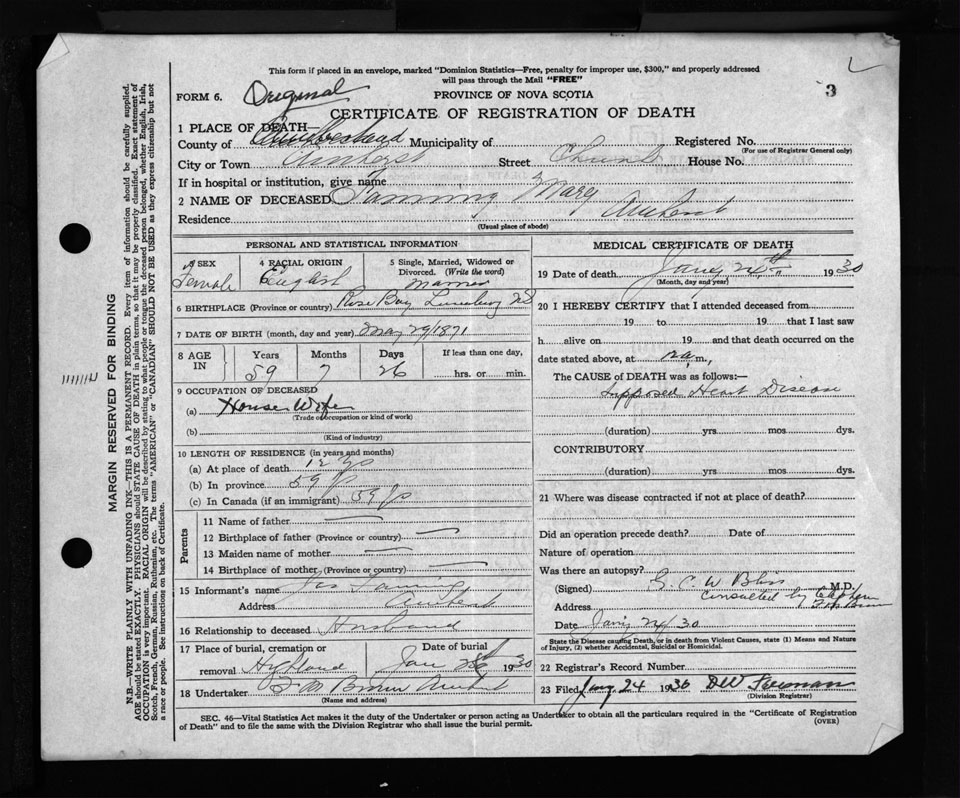 This form if placed in an envelope, marked "Dominion Statistics—Free, penalty for improper use, $300," and properly addressed
will pass through the Mail "FREE"
3
FORM 6. Original
PROVINCE OF NOVA SCOTIA
CERTIFICATE OF REGISTRATION OF DEATH
1 PLACE OF DEATH—
County of Cumberland Municipality of Registered No.
(For use of Registrar General only)
City or Town Amherst Street Church House No.
If in hospital or institution, give name
2 NAME OF DECEASED Mary
Residence Amherst
(Usual place of abode)
PERSONAL AND STATISTICAL INFORMATION
3 SEX 4 RACIAL ORIGIN 5 Single, Married, Widowed or
Divorced. (Write the word)
Female English Married
6 BIRTHPLACE (Province or country) Rose Bay Lunenburg NS
7 DATE OF BIRTH (month, day and year) May 29/1871
8 AGE IN Years Months Days If less than one day,
59 7 26 hrs. or min.
9 OCCUPATION OF DECEASED
(a) House Wife
(Trade or occupation or kind of work)
(b)
(Kind of industry)
10 LENGTH OF RESIDENCE (in years and months)
(a) At place of death 12
(b) In province 59
(c) In Canada (if an immigrant) 59
Parents
11 Name of father —
12 Birthplace of father (Province or country) —
13 Maiden name of mother —
14 Birthplace of mother (Province or country) —
15 Informant's name
Address Amherst
16 Relationship to deceased Husband
17 Place of burial, cremation or Date of burial
removal Highland Jan 26 1930
18 Undertaker Brown Amherst
(Name and address)
MEDICAL CERTIFICATE OF DEATH
19 Date of death Jany 24th 1930
(Month, day and year)
20 I HEREBY CERTIFY that I attended deceased from
19 to 19 that I last saw
h alive on 19 and that death occurred on the
date stated above, at m.,
The CAUSE of DEATH was as follows:—
Supposed Heart Disease
(duration) yrs mos dys.
CONTRIBUTORY
(duration) yrs mos dys.
21 Where was disease contracted if not at place of death?
Did an operation precede death? Date of
Nature of operation
Was there an autopsy?
(Signed) G. C. W. Bliss M.D.
Address consulted by
Date Jany 24/30
State the Disease causing Death, or in death from Violent Causes, state (1) Means and Nature
of Injury, (2) whether Accidental, Suicidal or Homicidal.
22 Registrar's Record Number
23 Filed Jany 24 1930 DW Freeman
(Division Registrar)
SEC. 46—Vital Statistics Act makes it the duty of the Undertaker or person acting as Undertaker to obtain all the particulars required in the "Certificate of Registration
of Death" and to file the same with the Division Registrar who shall issue the burial permit.
(OVER)
MARGIN RESERVED FOR BINDING
N.B.—WRITE PLAINLY WITH UNFADING INK—THIS IS A PERMANENT RECORD. Every item of information should be carefully supplied.
AGE should be stated EXACTLY. PHYSICIANS should STATE CAUSE OF DEATH in plain terms, so that it may be properly classified. Exact statement of
OCCUPATION is very important. RACIAL ORIGIN will be described by stating to what people or tongue the deceased person belonged, whether English, Irish,
Scotch, French, German, Russian, Ruthenian, etc. The terms "AMERICAN" or "CANADIAN" SHOULD NOT BE USED as they express citizenship but not
a race or people. See instructions on back of Certificate.